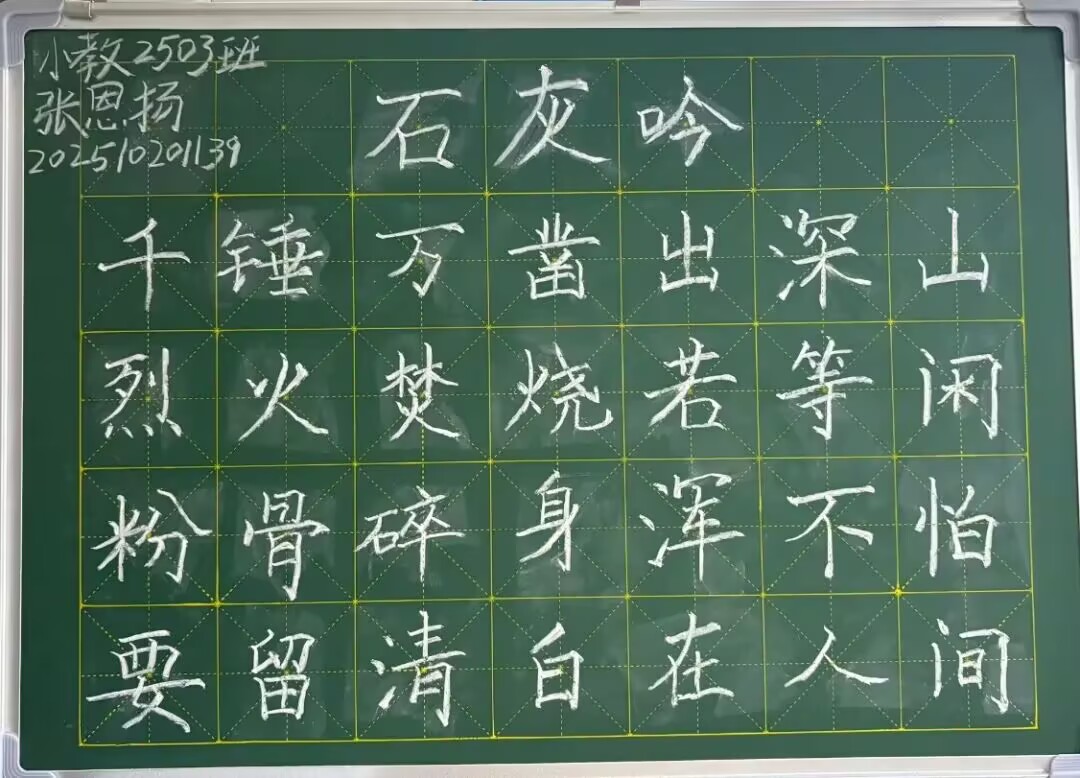 小教2503班
张恩扬
202510201139
石灰吟
千锤万凿出深山
烈火焚烧若等闲
粉骨碎身浑不怕
要留清白在人间